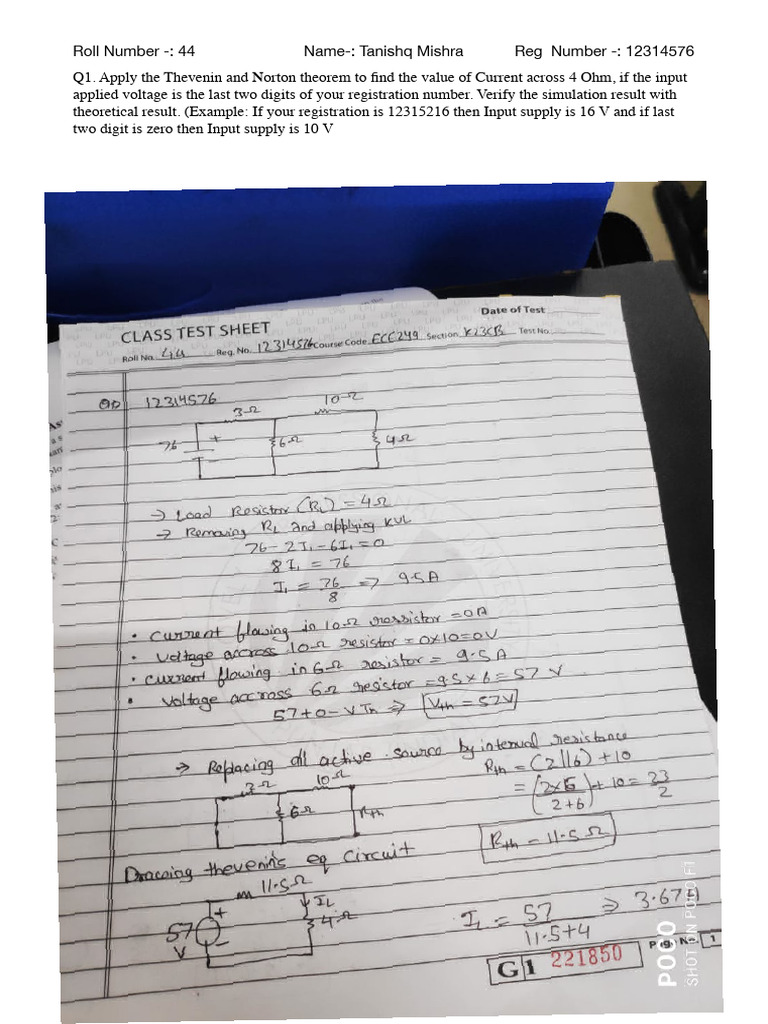 Roll Number -: 44 Name-: Tanishq Mishra Reg Number -: 12314576
Q1. Apply the Thevenin and Norton theorem to find the value of Current across 4 Ohm, if the input
applied voltage is the last two digits of your registration number. Verify the simulation result with
theoretical result. (Example: If your registration is 12315216 then Input supply is 16 V and if last
two digit is zero then Input supply is 10 V
CLASS TEST SHEET
Date of Test
Roll No. 44 Reg. No. 12314576 Course Code ECE249 Section K23CB Test No.
12314576
3Ω 10Ω
76 + 6Ω 4Ω
-
→ Load Resistor (RL) = 4Ω
→ Removing RL and applying KVL
76-2I1-6I1=0
8I1 = 76
I1 = 76/8 => 9.5A
• Current flowing in 10Ω ressistor = 0A
• Voltage accross 10Ω resistor = 0x10=0V
• Current flowing in 6Ω resistor = 9.5A
• Voltage accross 6Ω resistor = 9.5 x 6 = 57 V
57+0-VTh => Vth = 57V
→ Replacing all active source by internal resistance
3Ω 10Ω
6Ω Rth
Rth = (2||6) + 10
= (2x6/2+6) + 10 = 23/2
Rth = 11.5 Ω
Drawing thevenin's eq Circuit
11.5Ω
57 V + - IL 4Ω
IL = 57/11.5+4 => 3.67A
Page No 1
G1 221850
POCO
SHOT ON POCO F1